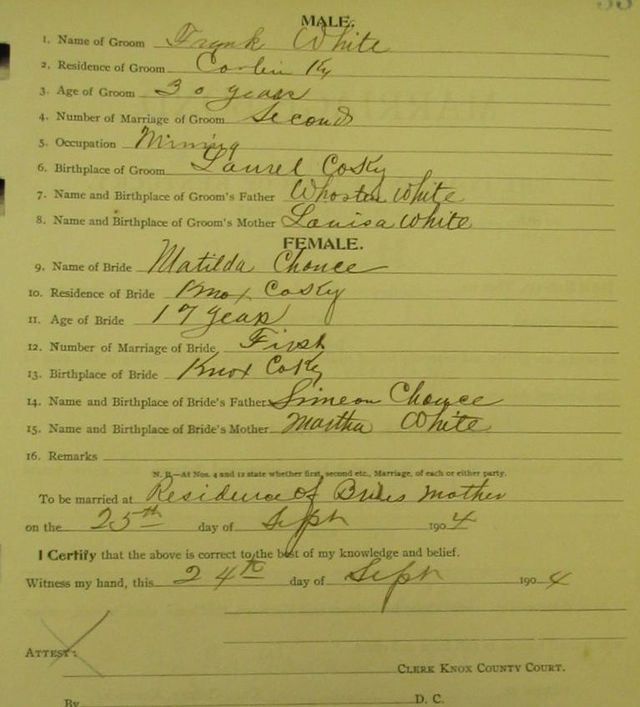 33
MALE.
1. Name of Groom Frank White
2. Residence of Groom Corbin Ky
3. Age of Groom 30 years
4. Number of Marriage of Groom Second
5. Occupation Mining
6. Birthplace of Groom Laurel Co Ky
7. Name and Birthplace of Groom's Father White
8. Name and Birthplace of Groom's Mother Louisa White
FEMALE.
9. Name of Bride Matilda Chonce
10. Residence of Bride Knox Co Ky
11. Age of Bride 17 years
12. Number of Marriage of Bride First
13. Birthplace of Bride Knox Co Ky
14. Name and Birthplace of Bride's Father Simeon Chonce
15. Name and Birthplace of Bride's Mother Martha White
16. Remarks
N. B.—At Nos. 4 and 12 state whether first, second etc., Marriage, of each or either party.
To be married at Residence of Brides Mother
on the 25th day of Sept 1904
I Certify that the above is correct to the best of my knowledge and belief.
Witness my hand, this 24th day of Sept 1904
ATTEST:
CLERK KNOX COUNTY COURT.
By D. C.